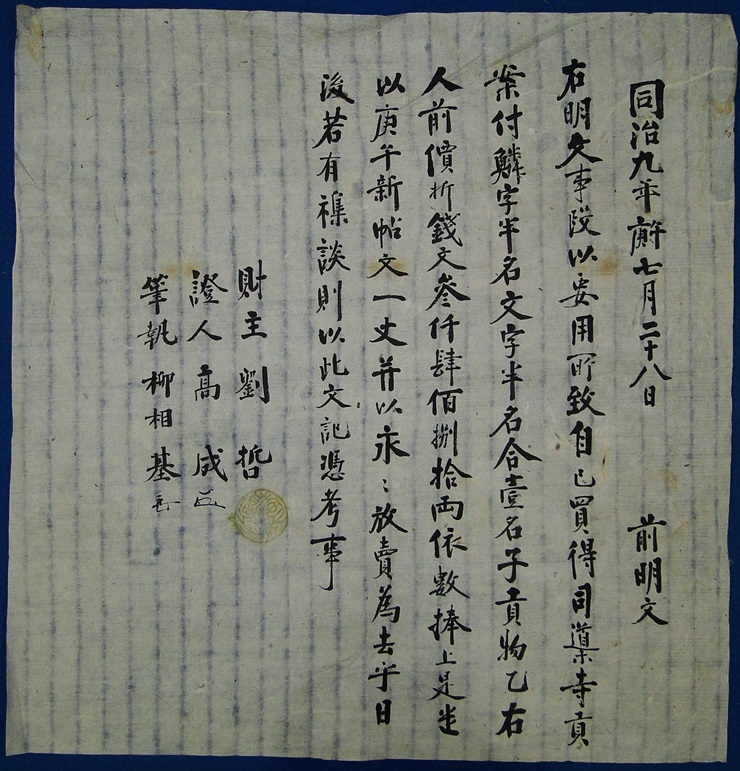 同治九年庚午七月二十八日 前明文
右明文事段以要用所致自己買得司䆃寺貢
案付鱗字半名文字半名合壹名子貢物乙右
人前價折錢文叄仟肆佰捌拾兩依數捧上是遣
以庚午新帖文一丈并以永〻放賣爲去乎日
後若有雜談則以此文記憑考事
財主 劉哲
證人 高成
筆執 柳相基